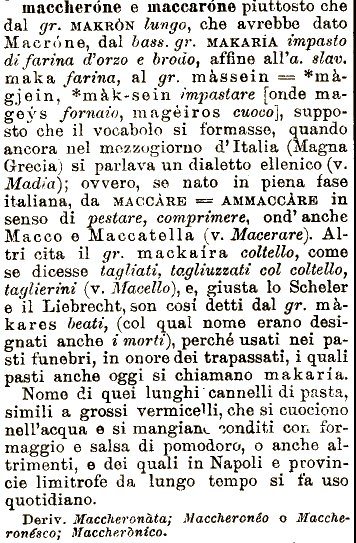 maccheróne e maccaróne piuttosto che
dal gr. MAKRÒN lungo, che avrebbe dato
Macróne, dal bass. gr. MAKARÍA impasto
di farina d'orzo e brodo, affine all'a. slav.
maka farina, al gr. màssein = *mà-
gjein, *màk-sein impastare [onde ma-
geỳs fornaio, magèiros cuoco], suppo-
sto che il vocabolo si formasse, quando
ancora nel mezzogiorno d'Italia (Magna
Grecia) si parlava un dialetto ellenico (v.
Madia); ovvero, se nato in piena fase
italiana, da MACCÀRE = AMMACCÀRE in
senso di pestare, comprimere, ond'anche
Macco e Maccatella (v. Macerare). Al-
tri cita il gr. mackaíra coltello, come
se dicesse tagliati, tagliuzzati col coltello,
taglierini (v. Macello), e, giusta lo Scheler
e il Liebrecht, son cosi detti dal gr. mà-
kares beati, (col qual nome erano desi-
gnati anche i morti), perché usati nei pa-
sti funebri, in onore dei trapassati, i quali
pasti anche oggi si chiamano makaría.
Nome di quei lunghi cannelli di pasta,
simili a grossi vermicelli, che si cuociono
nell'acqua e si mangian conditi con for-
maggio e salsa di pomodoro, o anche al-
trimenti, e dei quali in Napoli e provin-
cie limitrofe da lungo tempo si fa uso
quotidiano.
Deriv. Maccheronàta; Maccheronéo o Macche-
ronésco; Maccherònico.